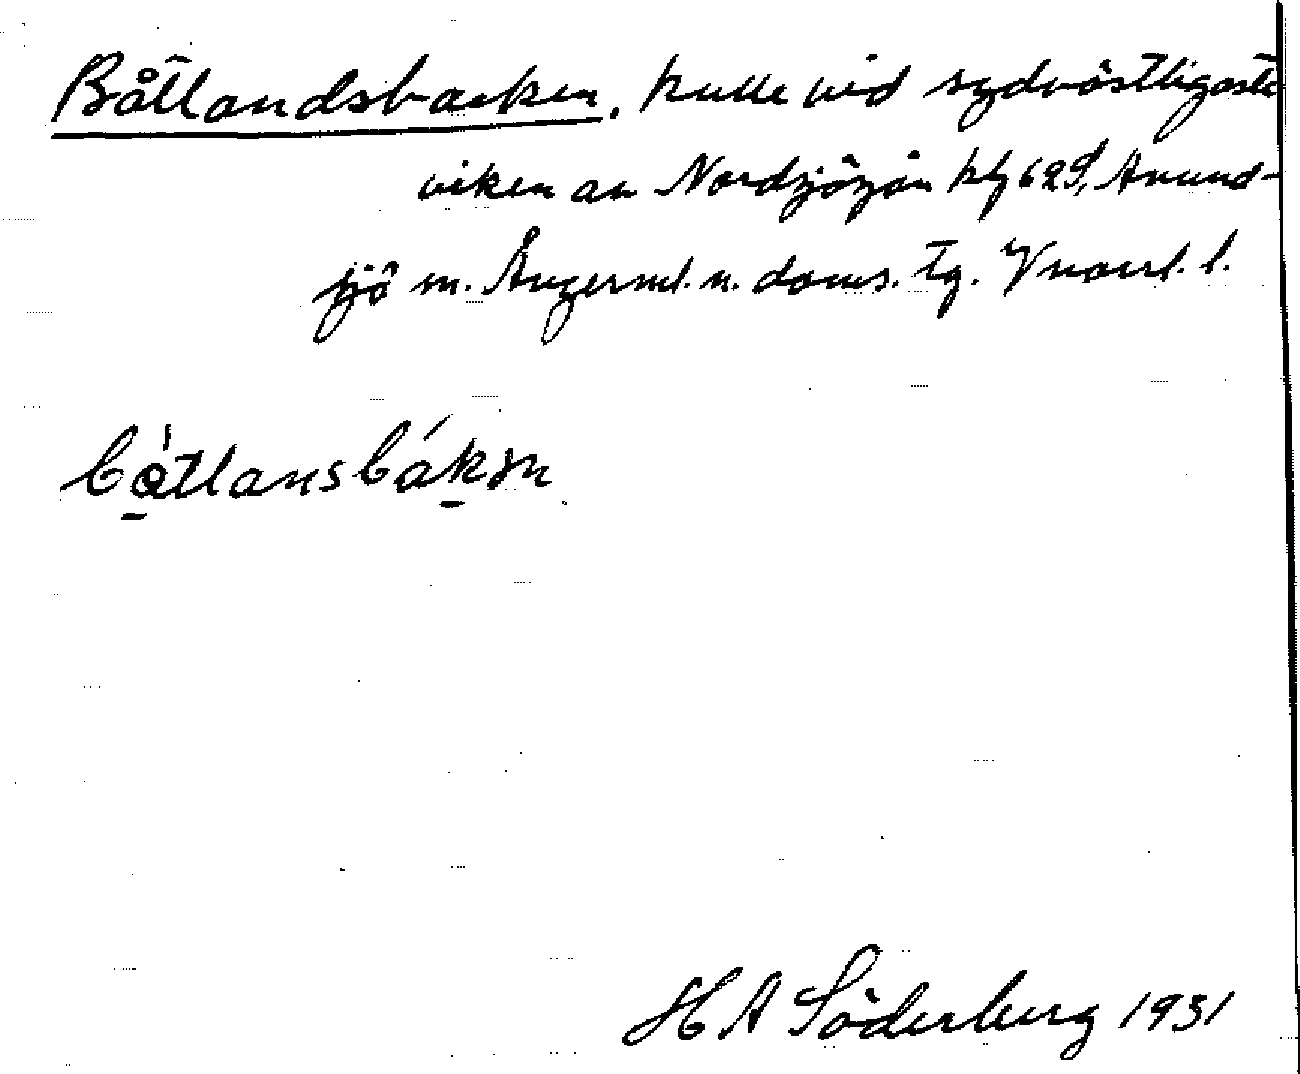 Båtlandsbacken, kulle vid sydvästligaste
viken av Nordsjösjön hfl 629, Anund-
sjö sn. Ångerml. n. doms. tg. Vnorrl. l.
bòtlansbákən
H A Söderberg 1931